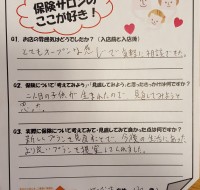 保険サロンの
ここが好き!
01. お店の雰囲気はどうでしたか?(入店前と入店後)
とてもオープンな感じで気軽に相談できた。
02. 保険について「考えてみよう」「見直してみよう」と思ったきっかけは何ですか?
二人目の子供が生まれたので、見直してみようと
思った。
03. 実際に保険について考えてみて・見直してみて良かった点は何ですか?
新しいプランを見直すことで、今後の生活にあった
より良いプランを提案してくれました。